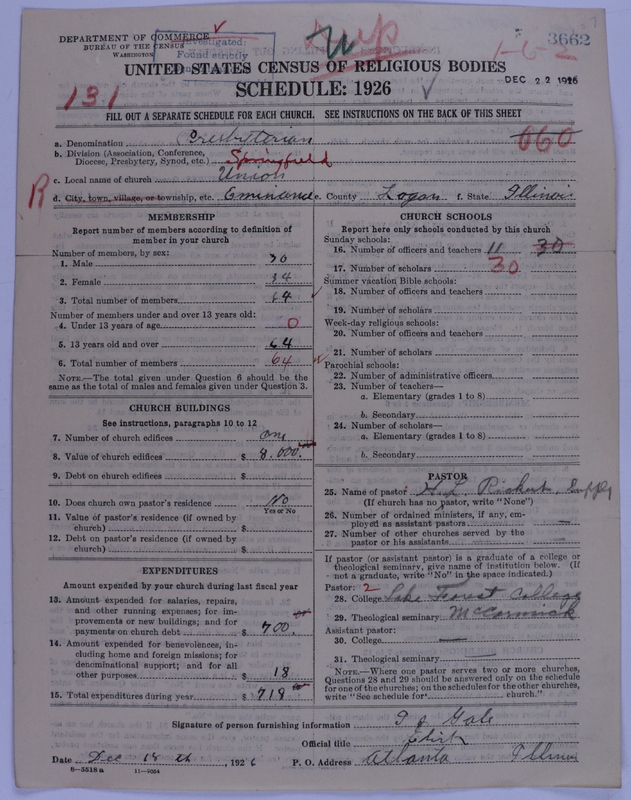 DEPARTMENT OF COMMERCE
BUREAU OF THE CENSUS
WASHINGTON
Investigated:
Found strictly
3662
1-6-2
UNITED STATES CENSUS OF RELIGIOUS BODIES
DEC 22 1926
SCHEDULE: 1926
131
FILL OUT A SEPARATE SCHEDULE FOR EACH CHURCH. SEE INSTRUCTIONS ON THE BACK OF THIS SHEET
060
a. Denomination Presbyterian
b. Division (Association, Conference, Diocese, Presbytery, Synod, etc.) Springfield
c. Local name of church Union
R
d. City, town, village, or township, etc. Eminence e. County Logan f. State Illinois
MEMBERSHIP
Report number of members according to definition of
member in your church
Number of members, by sex:
1. Male 30
2. Female 34
3. Total number of members 64
Number of members under and over 13 years old:
4. Under 13 years of age 0
5. 13 years old and over 64
6. Total number of members 64
NOTE.—The total given under Question 6 should be the
same as the total of males and females given under Question 3.
CHURCH BUILDINGS
See instructions, paragraphs 10 to 12
7. Number of church edifices one
8. Value of church edifices $ 8,000.
9. Debt on church edifices $
10. Does church own pastor's residence No
Yes or No
11. Value of pastor's residence (if owned by
church) $
12. Debt on pastor's residence (if owned by
church) $
EXPENDITURES
Amount expended by your church during last fiscal year
13. Amount expended for salaries, repairs,
and other running expenses; for im-
provements or new buildings; and for
payments on church debt $ 700.
14. Amount expended for benevolences, in-
cluding home and foreign missions; for
denominational support; and for all
other purposes $ 18
15. Total expenditures during year $ 718
CHURCH SCHOOLS
Report here only schools conducted by this church
Sunday schools:
16. Number of officers and teachers 11 30
17. Number of scholars 30
Summer vacation Bible schools:
18. Number of officers and teachers
19. Number of scholars
Week-day religious schools:
20. Number of officers and teachers
21. Number of scholars
Parochial schools:
22. Number of administrative officers
23. Number of teachers—
a. Elementary (grades 1 to 8)
b. Secondary
24. Number of scholars—
a. Elementary (grades 1 to 8)
b. Secondary
PASTOR
25. Name of pastor Supply
(If church has no pastor, write "None")
26. Number of ordained ministers, if any, em-
ployed as assistant pastors —
27. Number of other churches served by the
pastor or his assistants —
If pastor (or assistant pastor) is a graduate of a college or
theological seminary, give name of institution below. (If
not a graduate, write "No" in the space indicated.)
Pastor: 2
28. College Lake Forest College
29. Theological seminary McCormick
Assistant pastor:
30. College —
31. Theological seminary —
NOTE.—Where one pastor serves two or more churches,
Questions 28 and 29 should be answered only on the schedule
for one of the churches; on the schedules for the other churches,
write "See schedule for church."
Signature of person furnishing information Gale
Official title Clerk
Date Dec 18 th, 1926 P. O. Address Atlanta Illinois
8—5518 a 11—9054